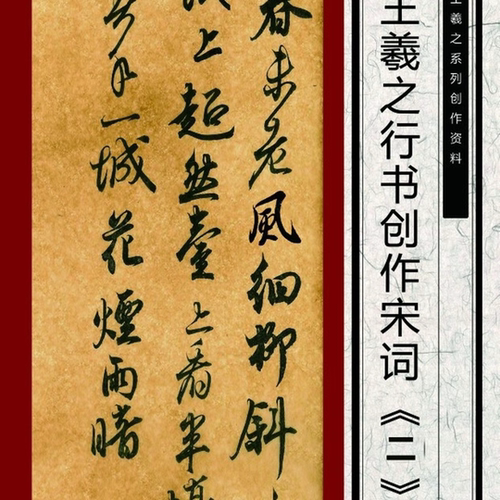 王羲之系列创作资料
王羲之行书创作宋词《二》
春未老風細柳斜
上超然臺上看半
水一城花煙雨暗